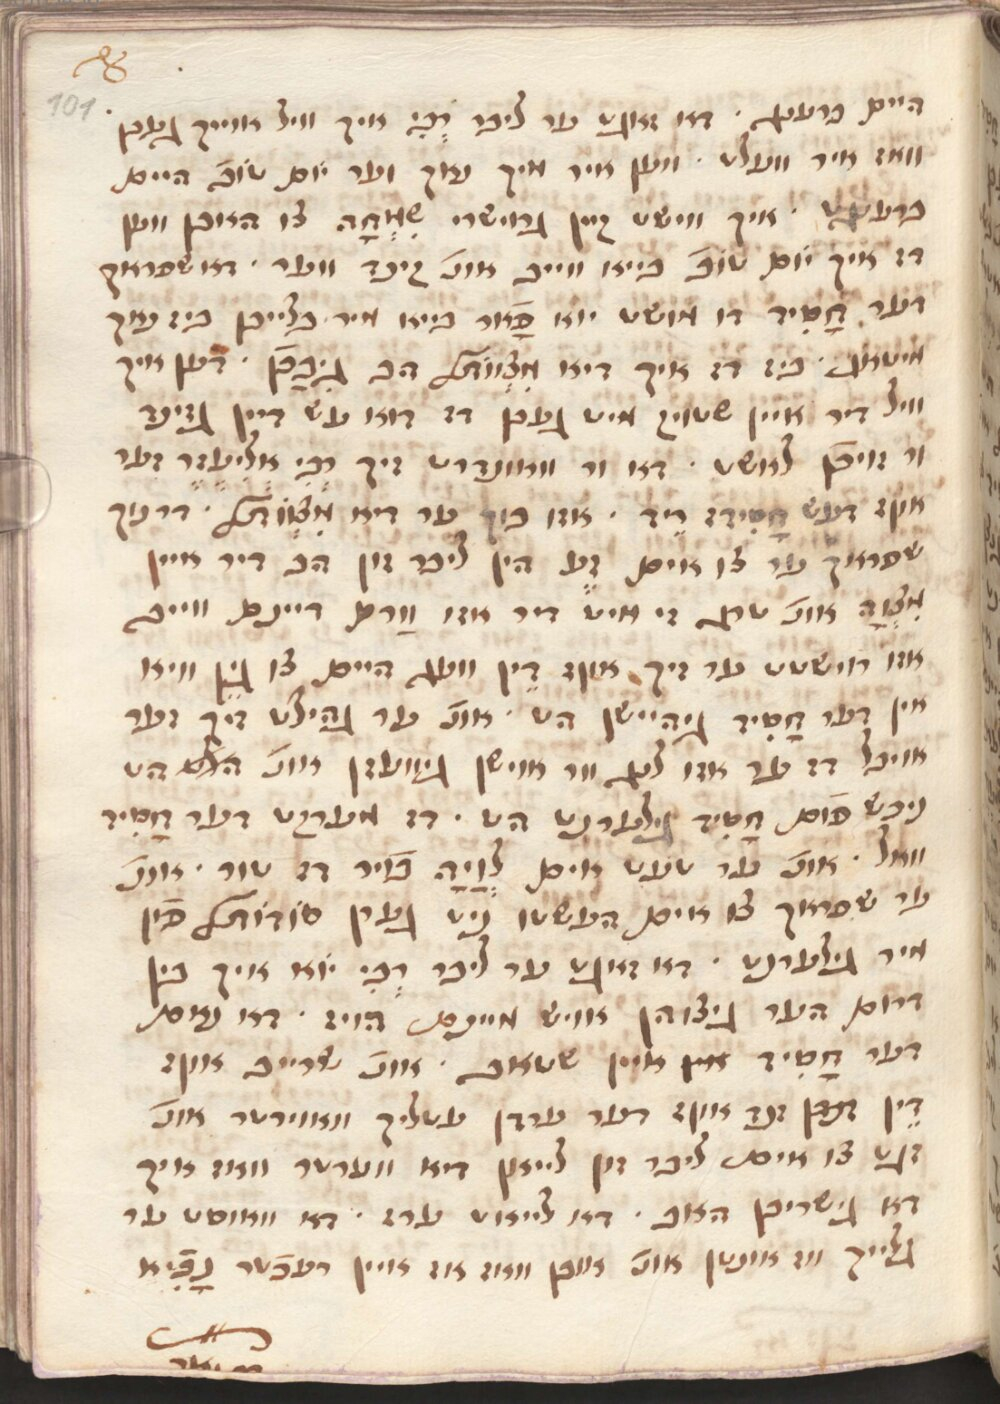 101
היים ברענג · דא זאגט ער ליבר רְבִּי איך וויל אוייך געבן
וואז איר וועלט · ווען איר מיך נאך ווער יוֹם טוֹב היים
ברענגט · איך ווישט קיין גרוישרי שִׂמְחָה צו האבן ווען
דז איך יוֹם טוֹב בייא ווייב אונ קינד ווער · דא שפראך
דער חָסִיד דו מושט יוא פָאר בייא מיר בלייבן ביז נאך
מיטאג · ביז דז איך דיא מַצְווֹת הב גיבַקן · דען איך
וויל דיר איין שטויק מיט געבן דז דוא עש דיין גזינד
זויכן לאשט · דא ור וואונדרט זיך רְבִּי אֱלִיעֶזֶר זער
אונ דעש חָסִידז רֵיד · אזו בוך ער דיא מַצְוֹות · דרנוך
שפראך ער צו אים זֶע הין ליבר זון הב דיר איין
מַצָה אונ טרג זי מיט דיר אזו וַרם דיינם ווייב
אזו רוישטט ער זיך אונ דֵין וועג היים צו גֵין וויא
אין דער חָסִיד גיהיישן הט · אונ ער גהילט זיך זער
אויבל דז ער אזו לנג וור אוישן גיוועזן אונ הט
ניכש פום חָסִיד גילערנט הט · דז מערקט דער חָסִיד
וואל · אונ ער טעט אים לְוָיָה פויר דז טור · אונ
ער שפראך צו אים העשטו ניט געבן סוֹדוֹת פון
מיר גילערנט · דא זאגט ער ליבר רְבִּי יוא איך בין
דרום הער גיצוהן אויש מיינם הויז · דא נאם
דער חָסִיד איין שטאב · אונ שרייב אונ
דֵין זנד אונ דער ערדן עטליך ווארטר אונ
זגט צו אים ליבר זון לייזן דיא ווערטר וואז איך
דא גישריבן האב · דא לייאוט ערז · דא וואוסט ער
גלייך ווז אונטן אונ אובן וואז אז איין רעכטר נָבִיא